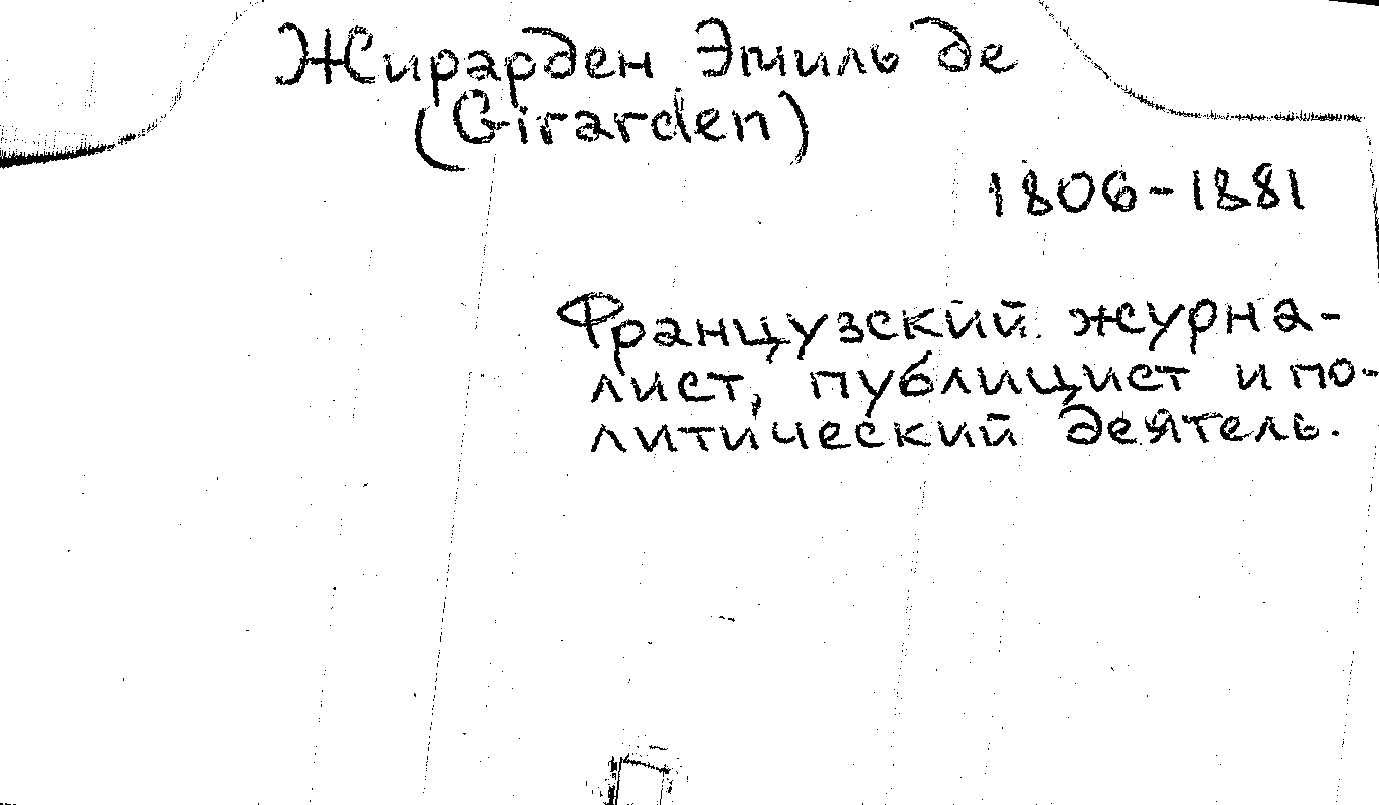 Жирарден Эмиль де
(Girarden)
1806-1881
Французский журна-
лист, публицист и по-
литический деятель.